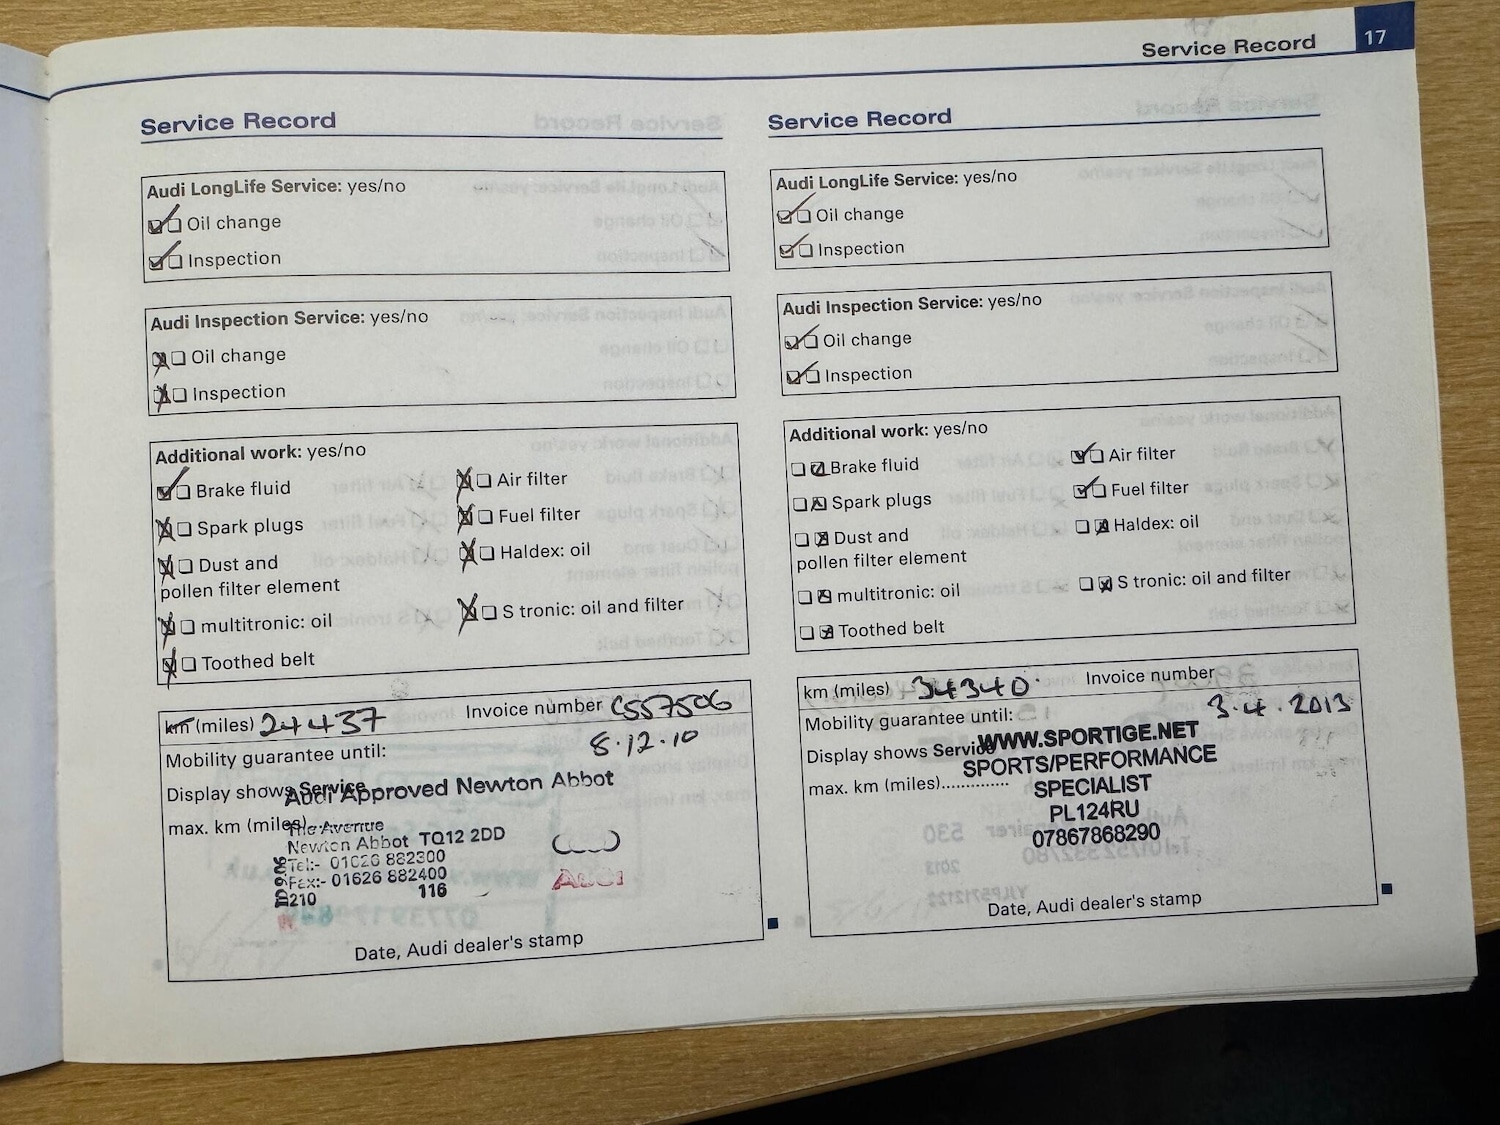 Service Record 17
Service Record
Audi LongLife Service: yes/no
Oil change
Inspection
Audi Inspection Service: yes/no
Oil change
Inspection
Additional work: yes/no
Brake fluid
Air filter
Spark plugs
Fuel filter
Dust and
pollen filter element
Haldex: oil
multitronic: oil
S tronic: oil and filter
Toothed belt
km (miles) 24437 Invoice number C557506
Mobility guarantee until: 8.12.10
Display shows Service
max. km (miles)
Audi Approved Newton Abbot
The Avenue
Newton Abbot TQ12 2DD
Tel:- 01626 882300
Fax:- 01626 882400
210 116
Audi
Date, Audi dealer's stamp
Service Record
Audi LongLife Service: yes/no
Oil change
Inspection
Audi Inspection Service: yes/no
Oil change
Inspection
Additional work: yes/no
Brake fluid
Air filter
Spark plugs
Fuel filter
Dust and
pollen filter element
Haldex: oil
multitronic: oil
S tronic: oil and filter
Toothed belt
km (miles) 34340 Invoice number
Mobility guarantee until: 3.4.2013
Display shows Service
max. km (miles)..............
WWW.SPORTIGE.NET
SPORTS/PERFORMANCE
SPECIALIST
PL124RU
07867868290
Date, Audi dealer's stamp